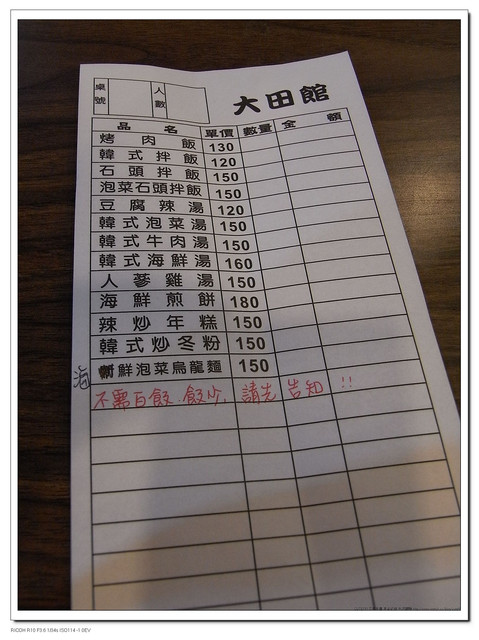 桌號 人數
大田館
品名 單價 數量 金額
烤肉飯 130
韓式拌飯 120
石頭拌飯 150
泡菜石頭拌飯 150
豆腐辣湯 120
韓式泡菜湯 150
韓式牛肉湯 150
韓式海鮮湯 160
人蔘雞湯 150
海鮮煎餅 180
辣炒年糕 150
韓式炒冬粉 150
海鮮泡菜烏龍麵 150
不需白飯.飯少,請先告知!!
RICOH R10 F3.6 1/34s ISO114 -1.0EV